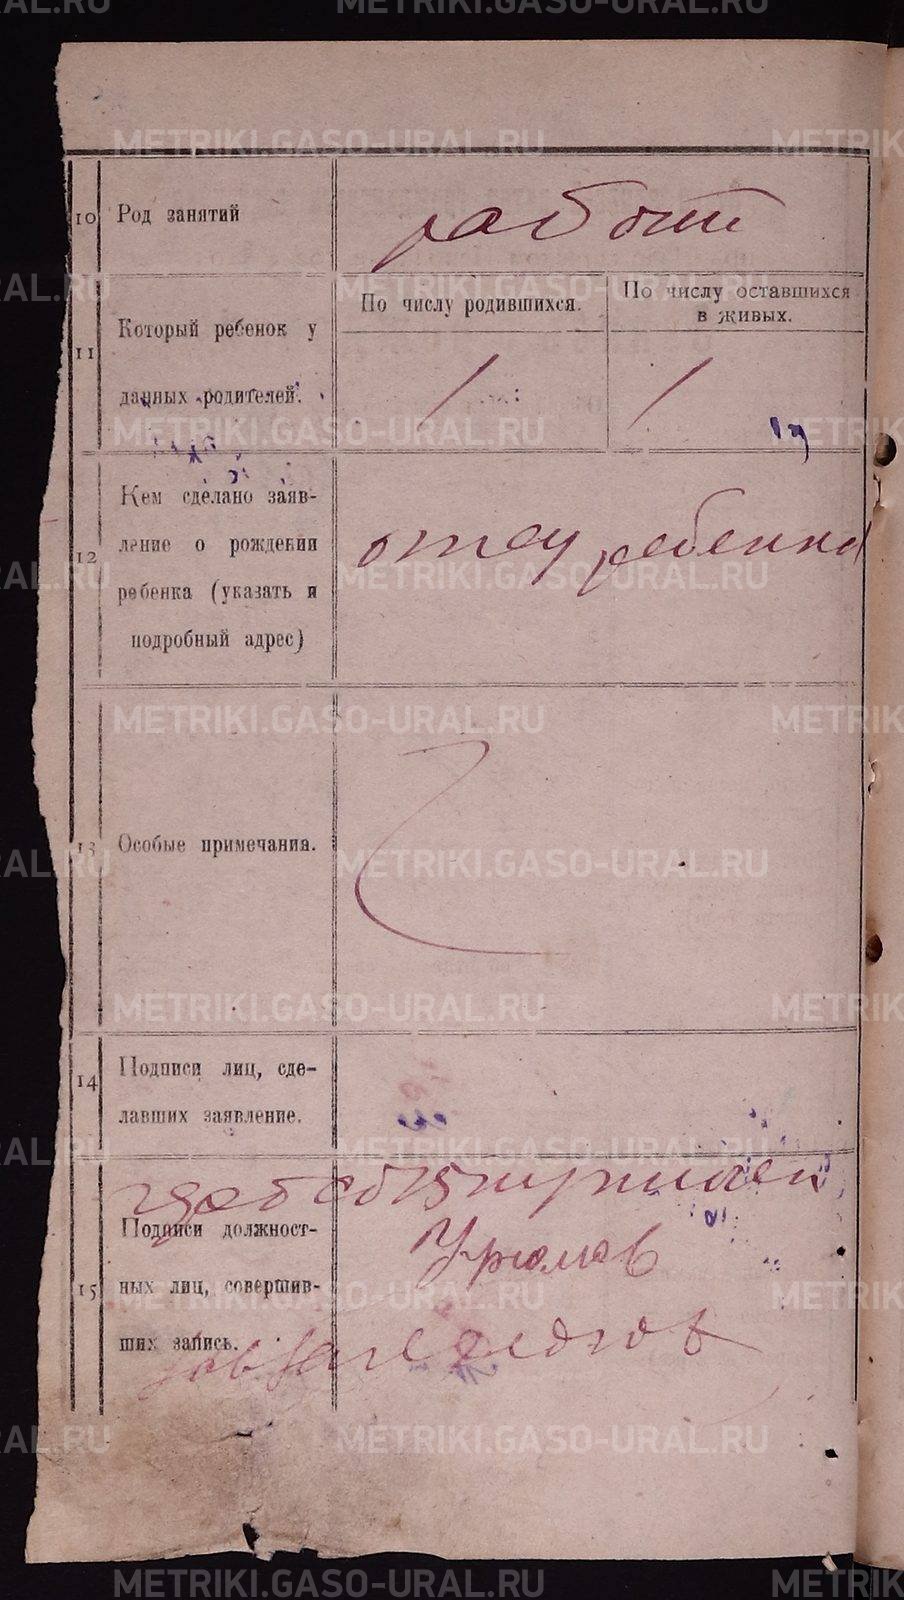 METRIKI.GASO-URAL.RU
10 Род занятий
работи
11 Который ребенок у
данных родителей.
По числу родившихся.
По числу оставшихся
в живых.
1
1
12 Кем сделано заяв-
ление о рождении
ребенка (указать и
подробный адрес)
отец ребенка
13 Особые примечания.
14 Подписи лиц, сде-
лавших заявление.
15 Подписи должност-
ных лиц, совершив-
ших запись.
Урюмов